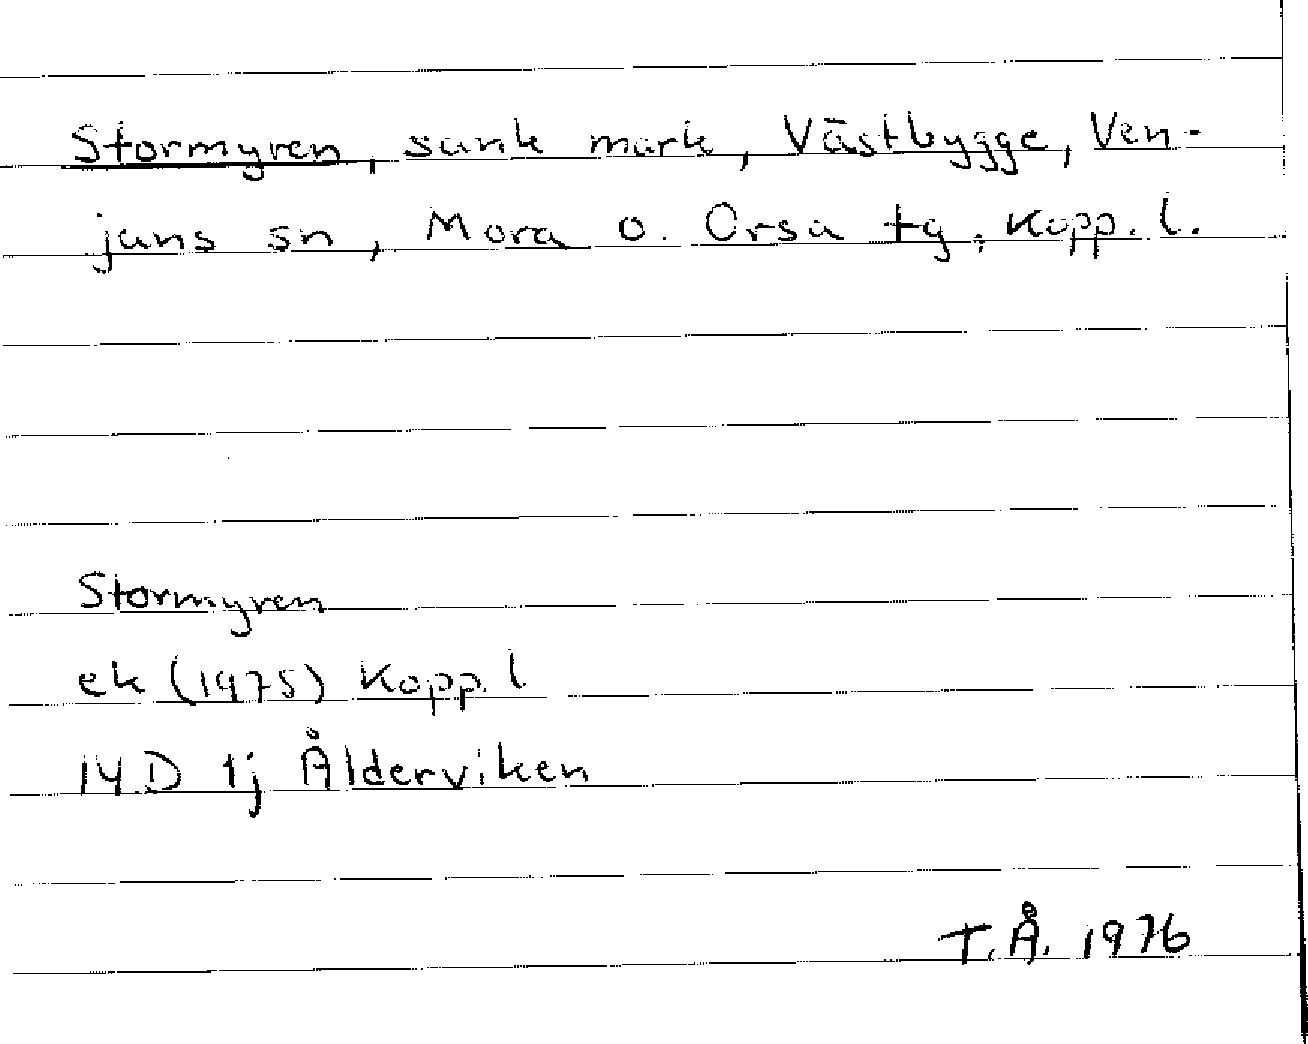 Stormyren, sank mark, Västbygge, Ven-
jans sn, Mora o. Orsa tg, Kopp. l.
Stormyren
ek (1975) Kopp. l
14 D 1j Ålderviken
T.Å. 1976